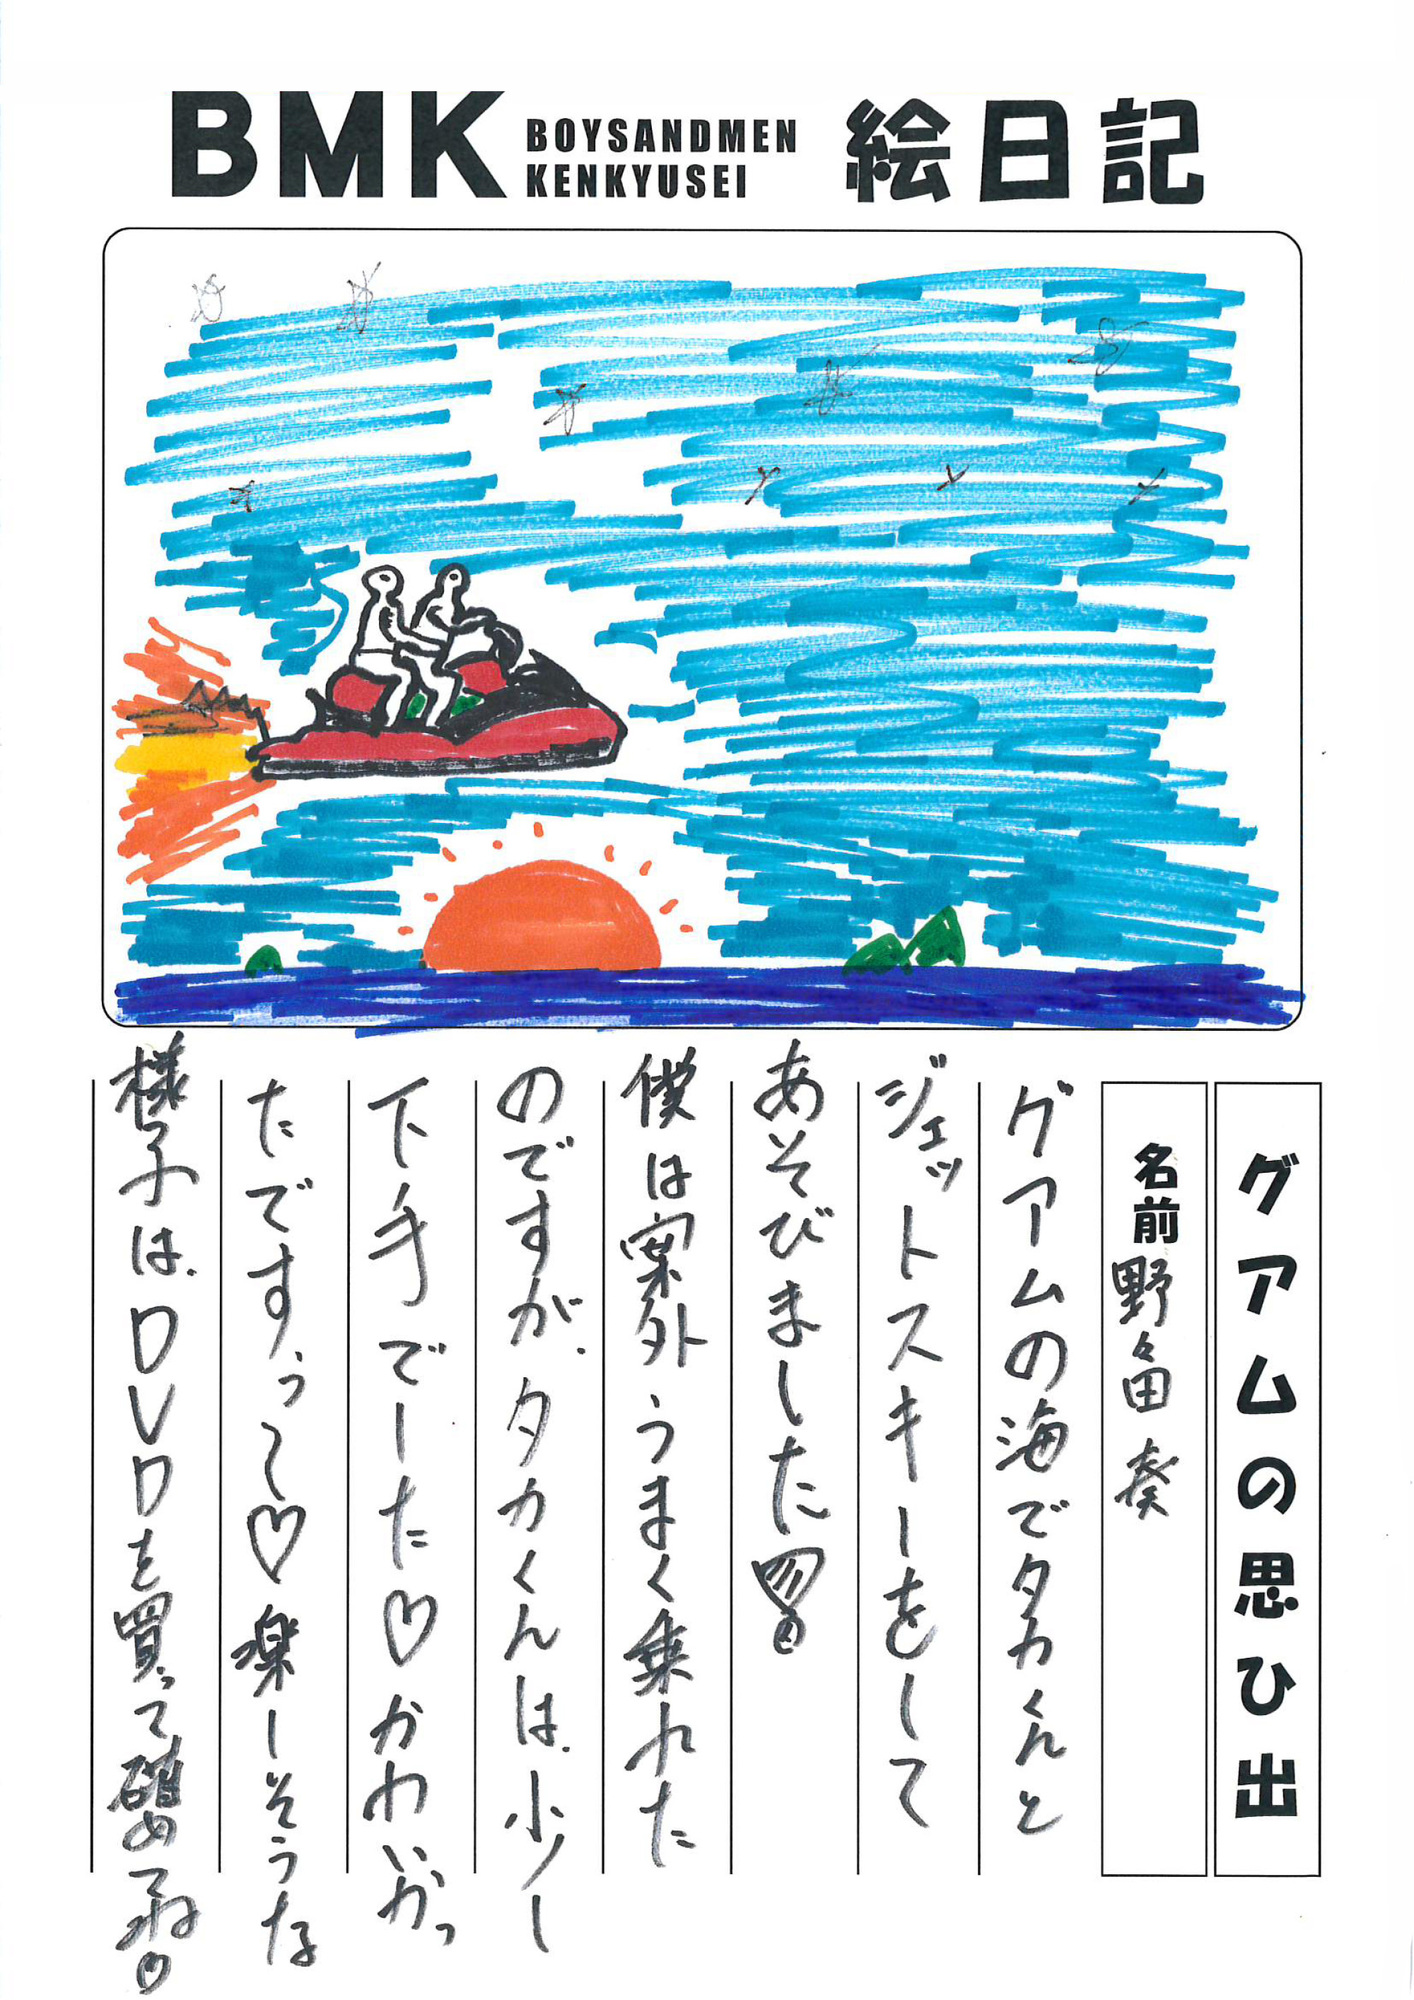 BMK
BOYSANDMEN
KENKYUSEI
絵日記
グアムの思ひ出
名前 野々田 奏
グアムの海でタカくんと
ジェットスキーをして
あそびました
僕は案外うまく乗れた
のですが、タカくんは、少し
下手でした♡かわいかっ
たです、うし♡楽しそうな
様子は、DVDを買って確めてね♡